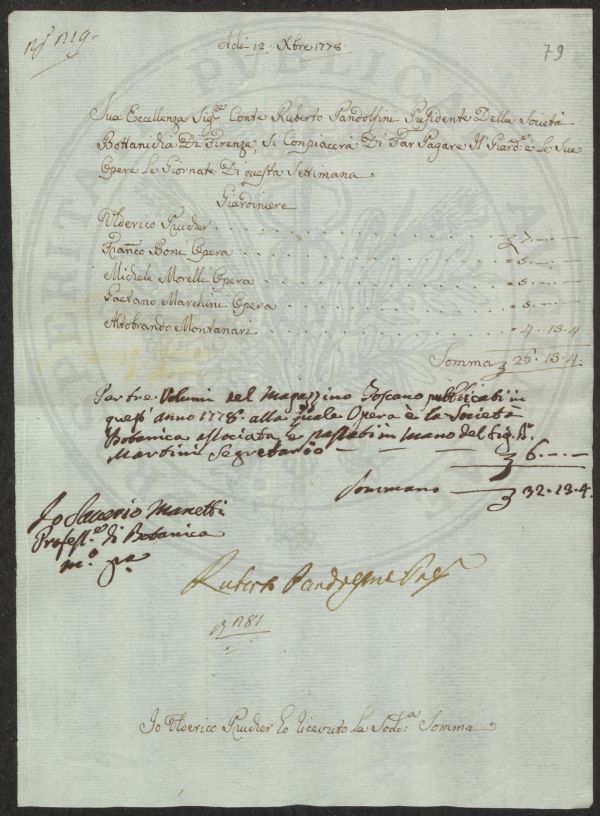 N.° 119.
79
Adi 12. Xbre 1778.
Sua Eccellenza Sig.re Conte Ruberto Pandolfini Presidente Della Società
Bottanicha Di Firenze, Si Conpiacerà Di Far Pagare Il Giard.re e Le Sue
Opere Le Giornate Di questa Settimana.
Giardiniere
Ulderico Prucher . . . 7. — —
Franc.o Boni Opera . . . 5. — —
Michele Morelli Opera . . . 5. — —
Gaetano Marchini Opera . . . 5. — —
Aldobrando Montanari . . . 4. 13. 4
Somma 26. 13. 4.
Per tre Volumi del Magazzino Toscano pubblicati in
quest' anno 1778. alla quale Opera è la Società
Botanica associata, e passati in mano del Sig. D.r
Martini Segretario — — — 6. — —
Sommano — 32. 13. 4
Io Saverio Manetti
Profess.re di Botanica
m.o p.a
Ruberto Pandolfini Pres.
N 181
Io Ulderico Prucher ho ricevuto la Sod.a Somma
PUBLICA